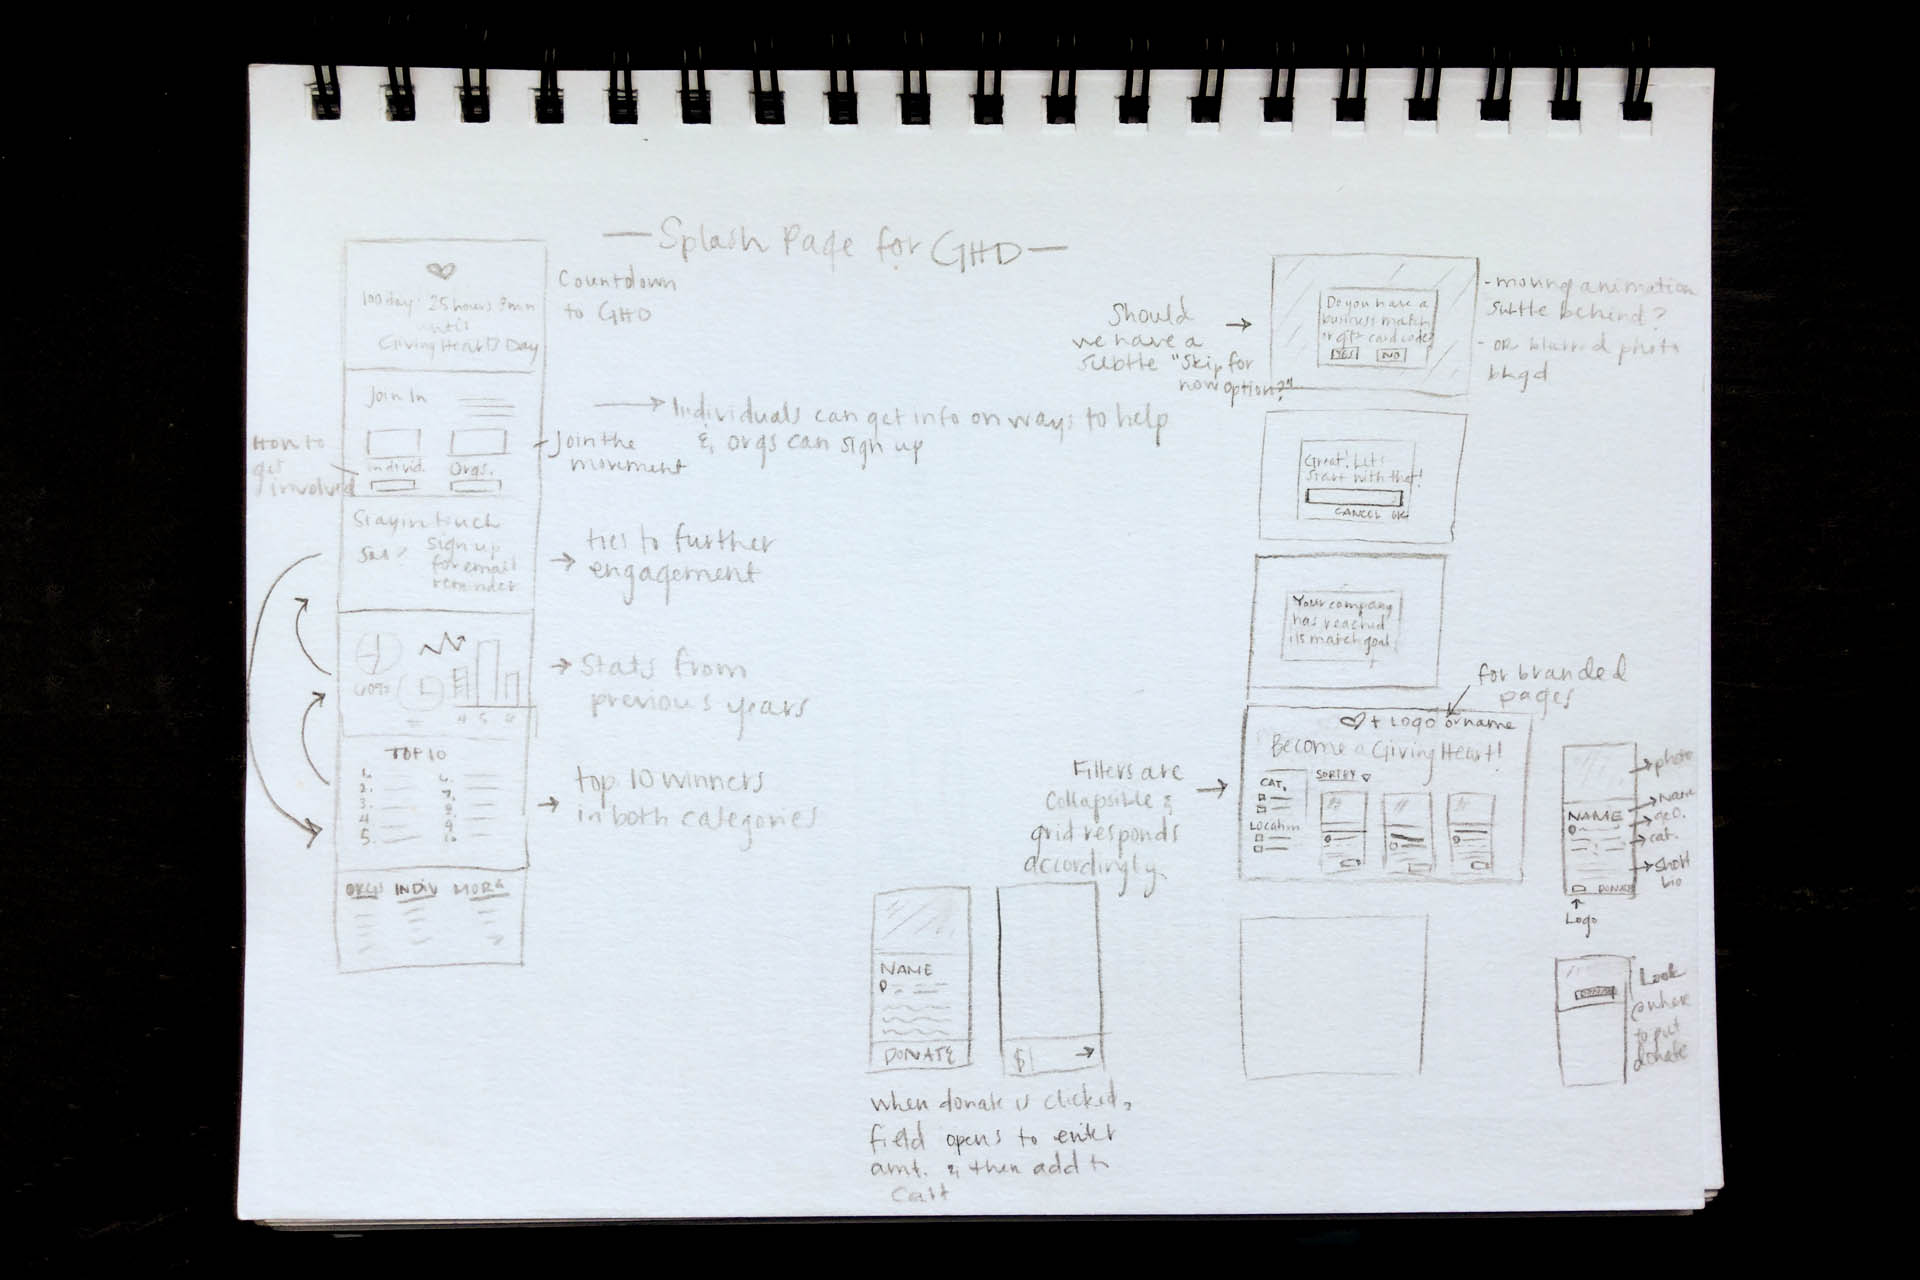 — Splash Page for GHD —
100 day: 25 hours 3 min
until
Giving Hearts Day
Countdown
to GHD
Join In
Individ. Orgs.
How to
get
involved
Join the
movement
Individuals can get info on ways to help
& orgs can sign up
Stay in touch
sign up
for email
reminder
ties to further
engagement
Stats from
previous years
TOP 10
1.
2.
3.
4.
5.
6.
7.
8.
9.
10.
top 10 winners
in both categories
ORGS INDIV MORE
Should
we have a
subtle "Skip for
now option?"
Do you have a
business match
or gift card code?
YES NO
- moving animation
subtle behind?
- OR blurred photo
bkgd
Great! Let's
start with that!
CANCEL OK
Your company
has reached
its match goal
for branded
pages
♡ + LOGO or name
Become a Giving Heart!
CAT.
SORT BY
Location
Filters are
collapsible &
grid responds
accordingly
photo
NAME
Name
geo.
cat.
short
bio
DONATE
Logo
NAME
DONATE
$
When donate is clicked,
field opens to enter
amt. & then add to
cart
DONATE
Look
@ where
to put
donate